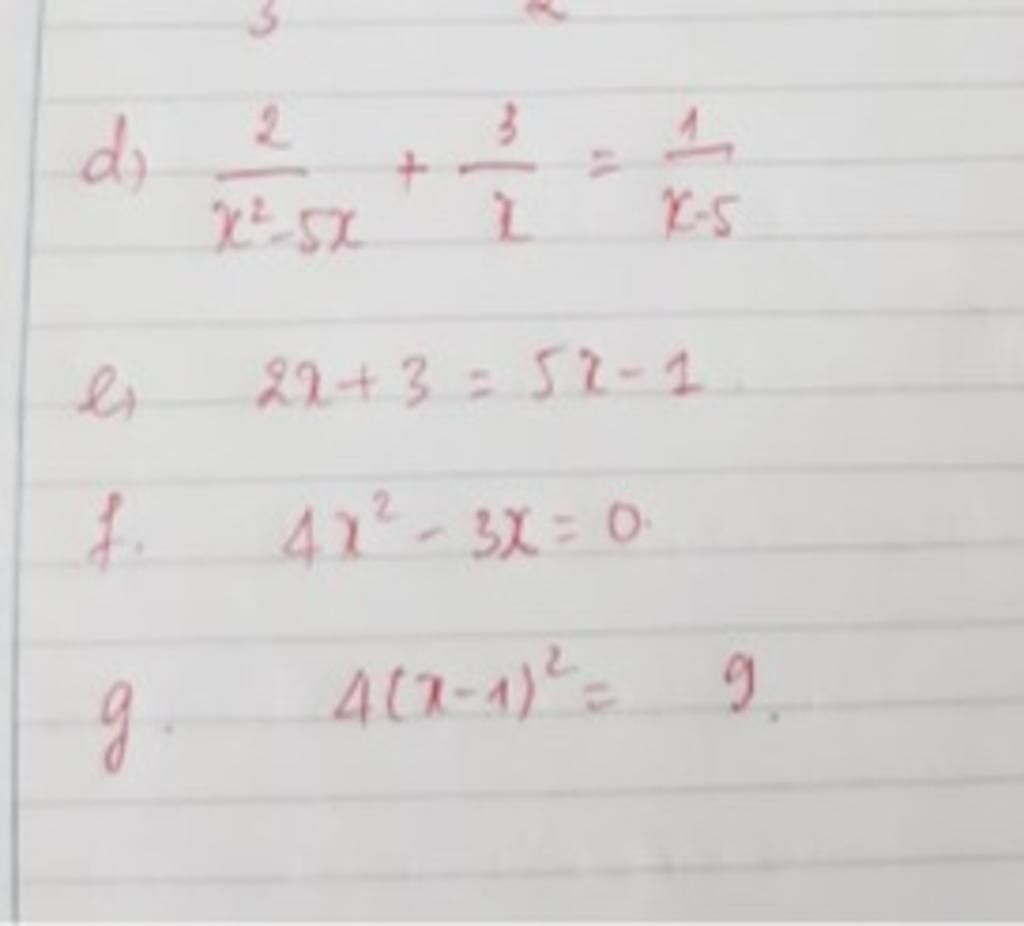 3 2
d) 2/(x²-5x) + 3/x = 1/(x-5)
e) 2x+3 = 5x-1
f. 4x² - 3x = 0.
g. 4(x-1)² = 9.